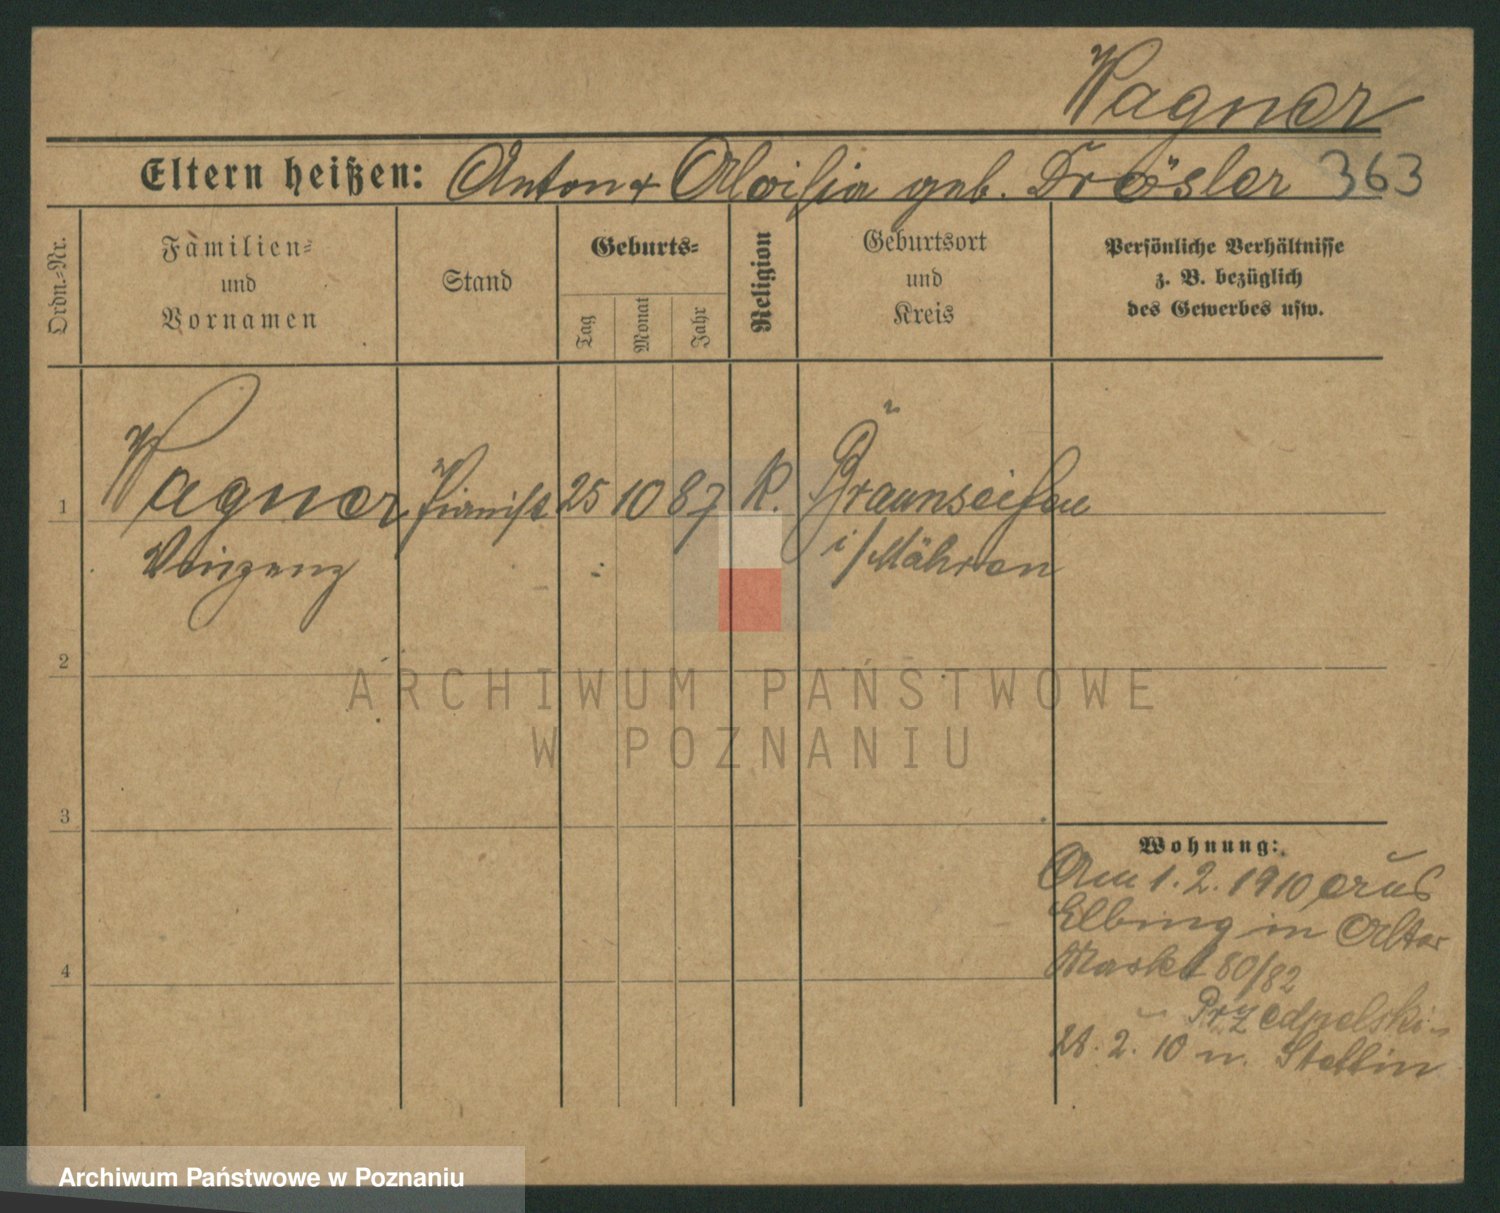 Wagner
Eltern heißen: Anton + Aloisia geb. Drösler 363
Ordn.-Nr.
Familien-
und
Vornamen
Stand
Geburts-
Tag
Monat
Jahr
Religion
Geburtsort
und
Kreis
Persönliche Verhältnisse
z. B. bezüglich
des Gewerbes usw.
1 Wagner Pianist 25 10 87 K. Braunseifen
Vinzenz i/Mähren
2
ARCHIWUM PAŃSTWOWE
W POZNANIU
3
Wohnung:
Am 1. 2. 1910 aus
Elbing in Alter
Markt 80/82
4
Przedpelski
28. 2. 10 n. Stettin
Archiwum Państwowe w Poznaniu